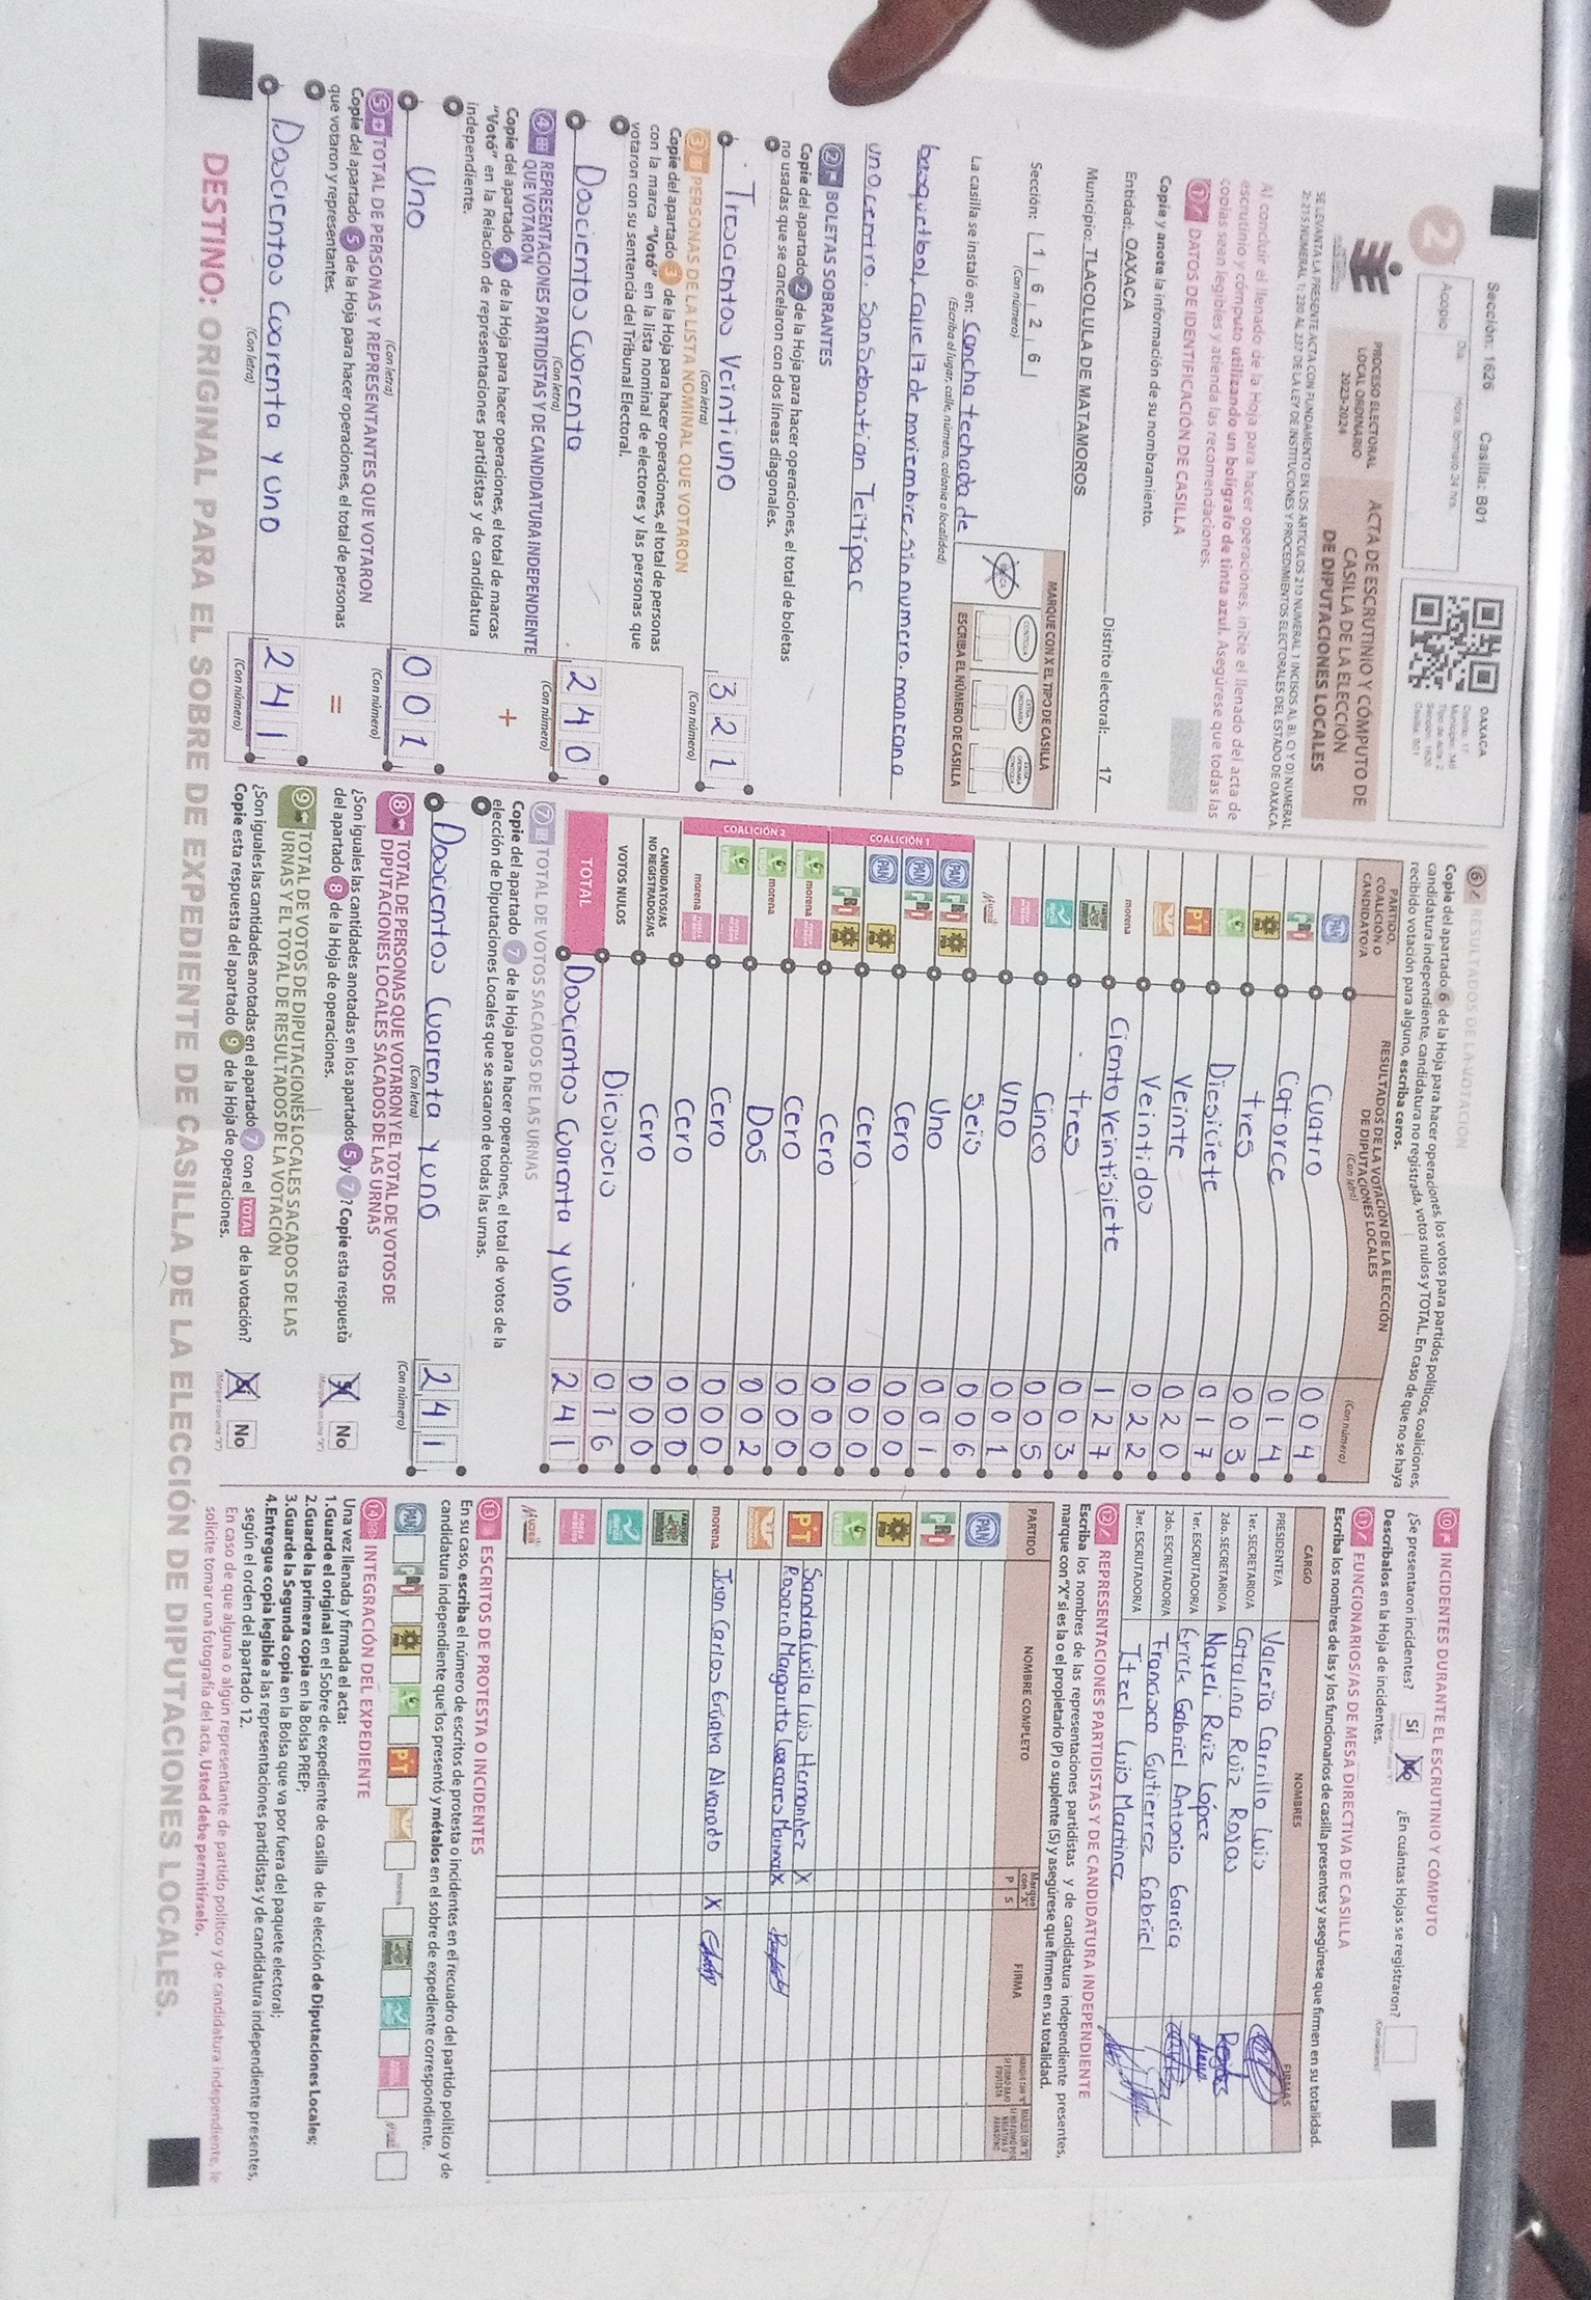 Sección: 1626 Casilla: B01
2
Acopio
Día
Hora: formato 24 hrs.
OAXACA
PROCESO ELECTORAL
LOCAL ORDINARIO
2023-2024
ACTA DE ESCRUTINIO Y CÓMPUTO DE
CASILLA DE LA ELECCIÓN
DE DIPUTACIONES LOCALES
Al concluir el llenado de la Hoja para hacer operaciones, inicie el llenado del acta de
escrutinio y cómputo utilizando un bolígrafo de tinta azul. Asegúrese que todas las
copias sean legibles y atienda las recomendaciones.
1 DATOS DE IDENTIFICACIÓN DE CASILLA
Copie y anote la información de su nombramiento.
Entidad: OAXACA
Distrito electoral: 17
Municipio: TLACOLULA DE MATAMOROS
Sección: 1 6 2 6
(Con número)
MARQUE CON X EL TIPO DE CASILLA
ESCRIBA EL NÚMERO DE CASILLA
La casilla se instaló en: Cancha techada de
(Escriba el lugar, calle, número, colonia o localidad)
basquetbol, calle 17 de noviembre, sin numero, manzana
uno, centro. San Sebastian Teitipac
2 BOLETAS SOBRANTES
Copie del apartado 2 de la Hoja para hacer operaciones, el total de boletas
no usadas que se cancelaron con dos líneas diagonales.
Trescientos Veintiuno 3 2 1
(Con letra) (Con número)
3 PERSONAS DE LA LISTA NOMINAL QUE VOTARON
Copie del apartado 3 de la Hoja para hacer operaciones, el total de personas
con la marca "Votó" en la lista nominal de electores y las personas que
votaron con su sentencia del Tribunal Electoral.
Doscientos Cuarenta 2 4 0
(Con letra) (Con número)
4 REPRESENTACIONES PARTIDISTAS Y DE CANDIDATURA INDEPENDIENTE
QUE VOTARON
Copie del apartado 4 de la Hoja para hacer operaciones, el total de marcas
"Votó" en la Relación de representaciones partidistas y de candidatura
independiente.
+
Uno 0 0 1
(Con letra) (Con número)
5 TOTAL DE PERSONAS Y REPRESENTANTES QUE VOTARON
Copie del apartado 5 de la Hoja para hacer operaciones, el total de personas
que votaron y representantes.
=
Doscientos Coarenta y uno 2 4 1
(Con letra) (Con número)
6 RESULTADOS DE LA VOTACIÓN
Copie del apartado 6 de la Hoja para hacer operaciones, los votos para partidos políticos, coaliciones,
candidatura independiente, candidatura no registrada, votos nulos y TOTAL. En caso de que no se haya
recibido votación para alguno, escriba ceros.
PARTIDO,
COALICIÓN O
CANDIDATO/A
RESULTADOS DE LA VOTACIÓN DE LA ELECCIÓN
DE DIPUTACIONES LOCALES
(Con letra)
(Con número)
PAN Cuatro 0 0 4
PRI Catorce 0 1 4
PRD tres 0 0 3
Diesiciete 0 1 7
PT Veinte 0 2 0
Veintidos 0 2 2
morena Ciento Veintisiete 1 2 7
tres 0 0 3
Cinco 0 0 5
Uno 0 0 1
Seis 0 0 6
COALICIÓN 1
PAN PRI PRD Uno 0 0 1
PAN PRI Cero 0 0 0
PAN PRD Cero 0 0 0
PRI PRD Cero 0 0 0
COALICIÓN 2
morena Cero 0 0 0
morena Dos 0 0 2
Cero 0 0 0
morena Cero 0 0 0
CANDIDATOS/AS
NO REGISTRADOS/AS
Cero 0 0 0
VOTOS NULOS Diciseis 0 1 6
TOTAL Doscientos Cuarenta y uno 2 4 1
7 TOTAL DE VOTOS SACADOS DE LAS URNAS
Copie del apartado 7 de la Hoja para hacer operaciones, el total de votos de la
elección de Diputaciones Locales que se sacaron de todas las urnas.
Doscientos Cuarenta y uno 2 4 1
(Con letra) (Con número)
8 TOTAL DE PERSONAS QUE VOTARON Y EL TOTAL DE VOTOS DE
DIPUTACIONES LOCALES SACADOS DE LAS URNAS
¿Son iguales las cantidades anotadas en los apartados 5 y 7? Copie esta respuesta
del apartado 8 de la Hoja de operaciones.
Sí No
9 TOTAL DE VOTOS DE DIPUTACIONES LOCALES SACADOS DE LAS
URNAS Y EL TOTAL DE RESULTADOS DE LA VOTACIÓN
¿Son iguales las cantidades anotadas en el apartado 7 con el TOTAL de la votación?
Copie esta respuesta del apartado 9 de la Hoja de operaciones.
Sí No
10 INCIDENTES DURANTE EL ESCRUTINIO Y CÓMPUTO
¿Se presentaron incidentes? Sí No ¿En cuántas Hojas se registraron?
Descríbalos en la Hoja de incidentes.
11 FUNCIONARIOS/AS DE MESA DIRECTIVA DE CASILLA
Escriba los nombres de las y los funcionarios de casilla presentes y asegúrese que firmen en su totalidad.
CARGO NOMBRES FIRMAS
PRESIDENTE/A Valeria Carrillo Luis
1er. SECRETARIO/A Catalina Ruiz Rojas
2do. SECRETARIO/A Nayeli Ruiz López
1er. ESCRUTADOR/A Erick Gabriel Antonio Garcia
2do. ESCRUTADOR/A Francisco Gutierrez Gabriel
3er. ESCRUTADOR/A Itzel Luis Martinez
12 REPRESENTACIONES PARTIDISTAS Y DE CANDIDATURA INDEPENDIENTE
Escriba los nombres de las representaciones partidistas y de candidatura independiente presentes,
marque con "X" si es la o el propietario (P) o suplente (S) y asegúrese que firmen en su totalidad.
PARTIDO NOMBRE COMPLETO Marque con "X" P S FIRMA
PAN
PRI
PRD
PT Sandra Luxila Luis Hernandez X
Rosario Margarita X
morena Juan Carlos Grijalva Alvarado X
13 ESCRITOS DE PROTESTA O INCIDENTES
En su caso, escriba el número de escritos de protesta o incidentes en el recuadro del partido político y de
candidatura independiente que los presentó y métalos en el sobre de expediente de casilla correspondiente.
PAN PRI PRD PT morena
14 INTEGRACIÓN DEL EXPEDIENTE
Una vez llenada y firmada el acta:
1.Guarde el original en el Sobre de expediente de casilla de la elección de Diputaciones Locales;
2.Guarde la primera copia en la Bolsa PREP;
3.Guarde la Segunda copia en la Bolsa que va por fuera del paquete electoral;
4.Entregue copia legible a las representaciones partidistas y de candidatura independiente presentes,
según el orden del apartado 12.
En caso de que alguna o algún representante de partido político y de candidatura independiente, le
solicite tomar una fotografía del acta, Usted debe permitírselo.
DESTINO: ORIGINAL PARA EL SOBRE DE EXPEDIENTE DE CASILLA DE LA ELECCIÓN DE DIPUTACIONES LOCALES.